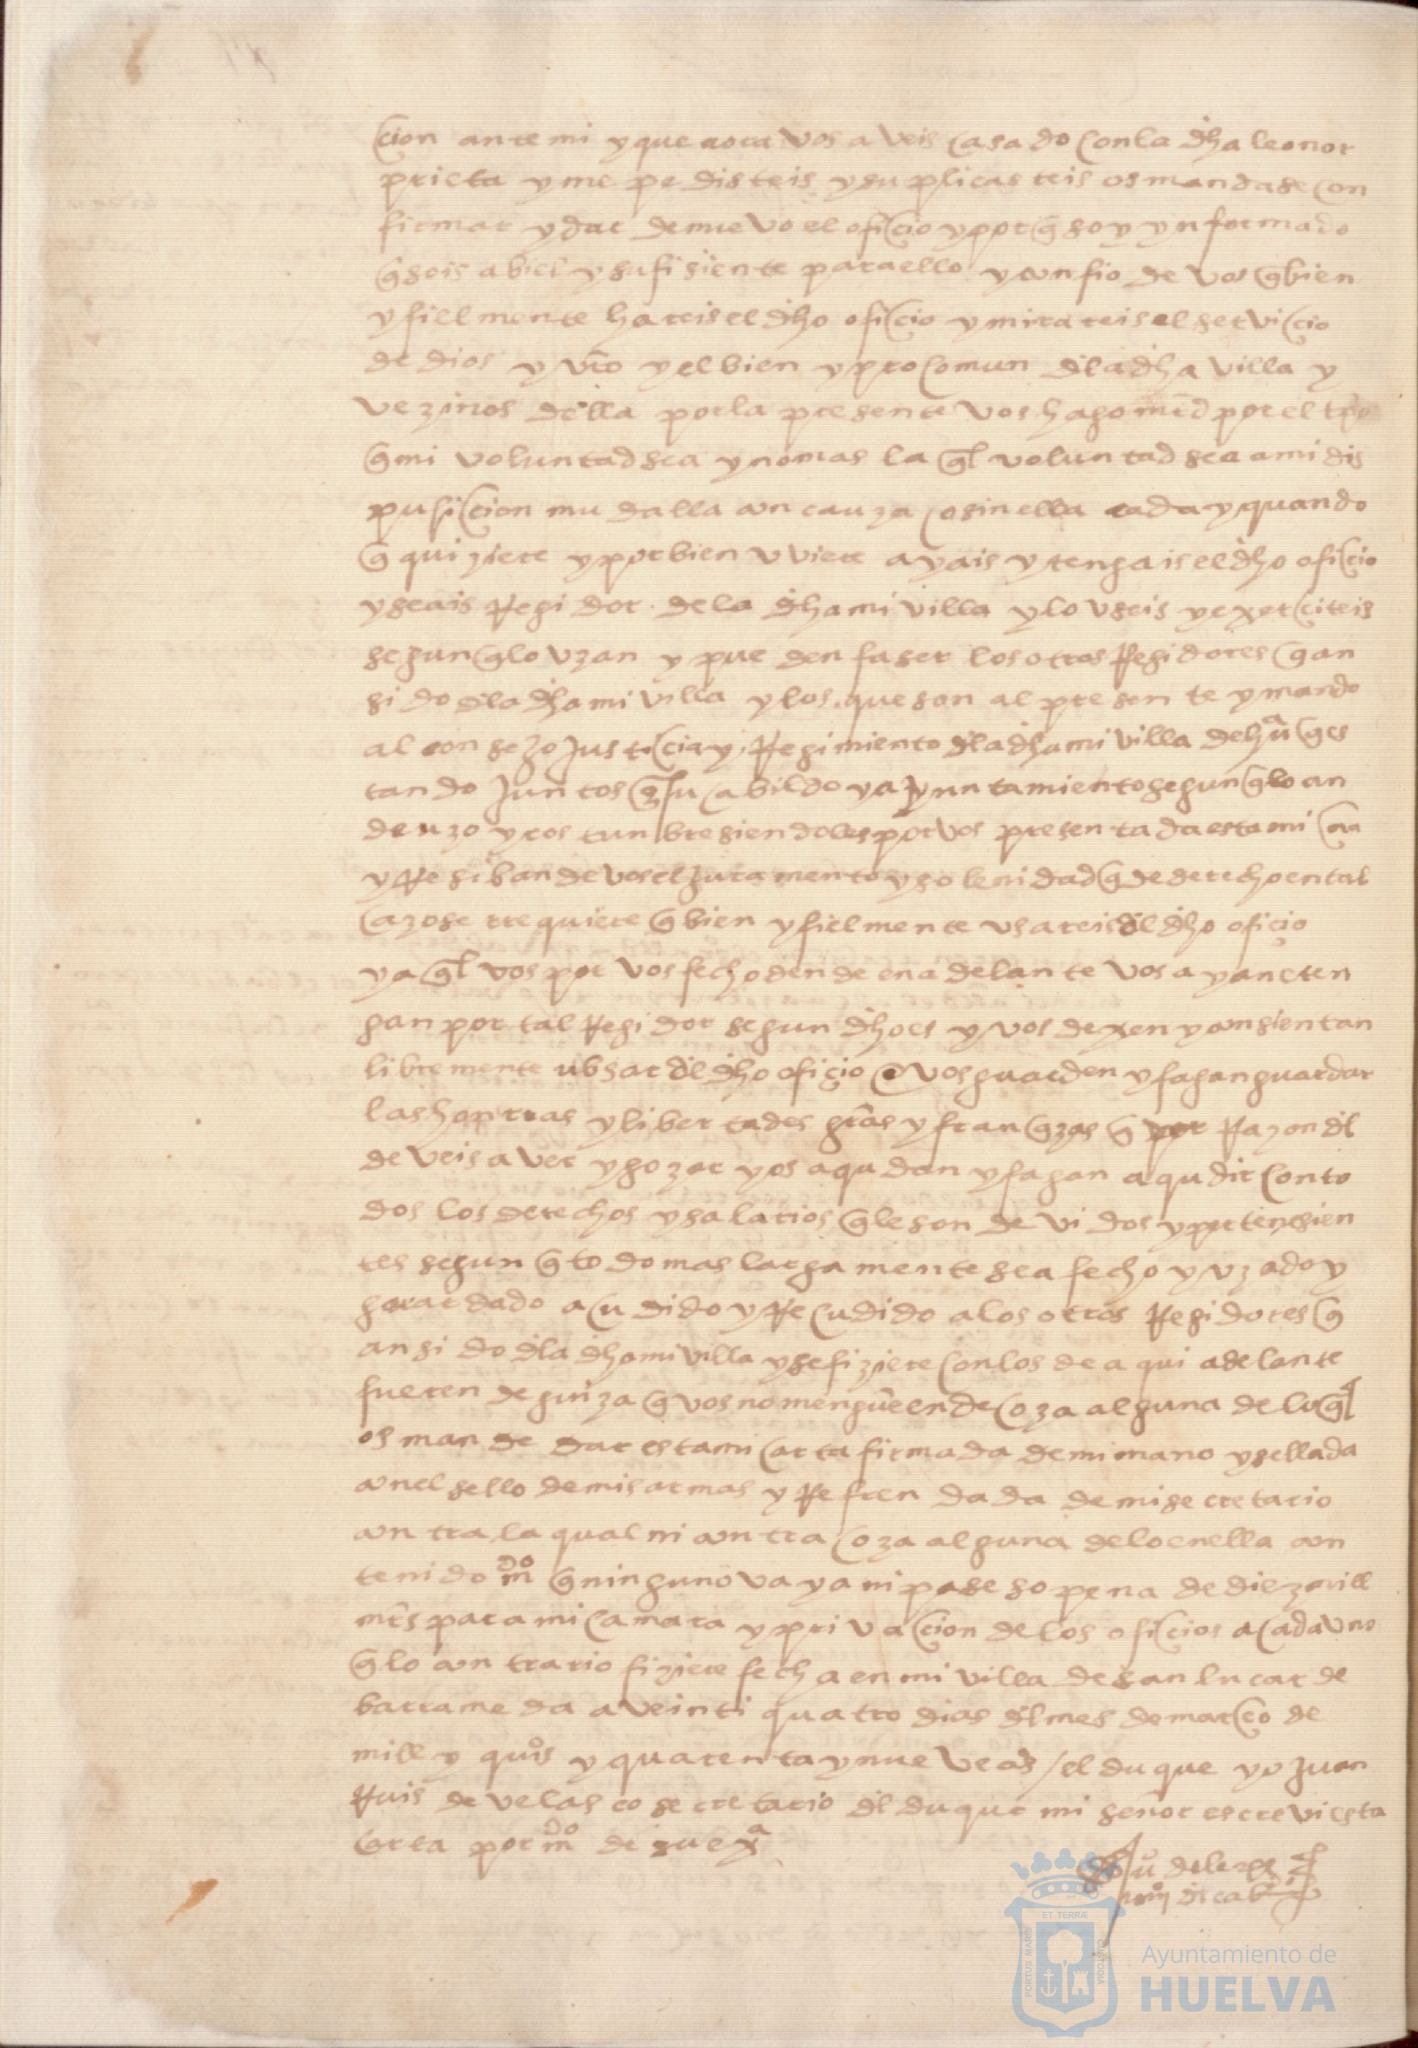 cion ante mi y que aora vos aveis casado con la dha leonor
prieta y me pedisteis y suplicasteis os mandase con
firmar y dar de nuevo el oficio y por q soy ynformado
q sois abiel y sufisiente para ello y confio de vos q bien
y fielmente hareis el dho oficio y mirareis el servicio
de dios y vro y el bien y procomun dla dha villa y
vezinos della por la presente vos hago mrd por el tpo
q mi voluntad sea y no mas la ql voluntad sea a mi dis
pusicion mudalla con cauza o sin ella cada y quando
q quiziere y por bien uviere ayais y tengais el dho oficio
y seais Regidor de la dha mi villa y lo useis y exerciteis
segun q lo uzan y pueden faser los otros Regidores q an
sido dla dha mi villa y los que son al presente y mando
al consezo justicia y Regimiento dla dha mi villa de hua q es
tando juntos en su cabildo y ayuntamiento segun q lo an
de uzo y costunbre siendoles por vos presentada esta mi
y Resiban de vos el juramento y solenidad q de derecho en tal
cazo se rrequiere q bien y fielmente usareis dl dho oficio
y a ql vos por vos fecho dende en adelante vos ayan e ten
gan por tal Regidor segun dho es y vos dexen y consientan
libremente ubsar dl dho oficio e vos guarden y fagan guardar
las honrras y libertades gras y franqzas q por Razon dl
deveis aver y gozar y os aqudan y fagan aqudir con to
dos los derechos y salarios q le son devidos y pertenesien
tes segun q todo mas largamente sea fecho y uzado y
guardado acudido y Recudido a los otros Regidores q
an sido dla dha mi villa y se fiziere con los de aqui adelante
fueren de guiza q vos no mengue ende coza alguna de lo ql
os mande dar esta mi carta firmada de mi mano y sellada
con el sello de mis armas y Refrendada de mi secretario
contra la qual ni contra coza alguna de lo en ella con
tenido mdo q ninguno vaya ni pase so pena de diez mill
mrs para mi camara y privacion de los oficios a cada uno
q lo contrario fiziere fecha en mi villa de san lucar de
barrameda a veinti quatro dias dl mes de marco de
mill y quis y quarenta y nueve as / el duque yo juan
Ruis de velasco secretario dl duque mi señor escrevi esta
carta por mdo de su exa
ET TERRÆ
PORTUS MARIS
CUSTODIA
Ayuntamiento de
HUELVA